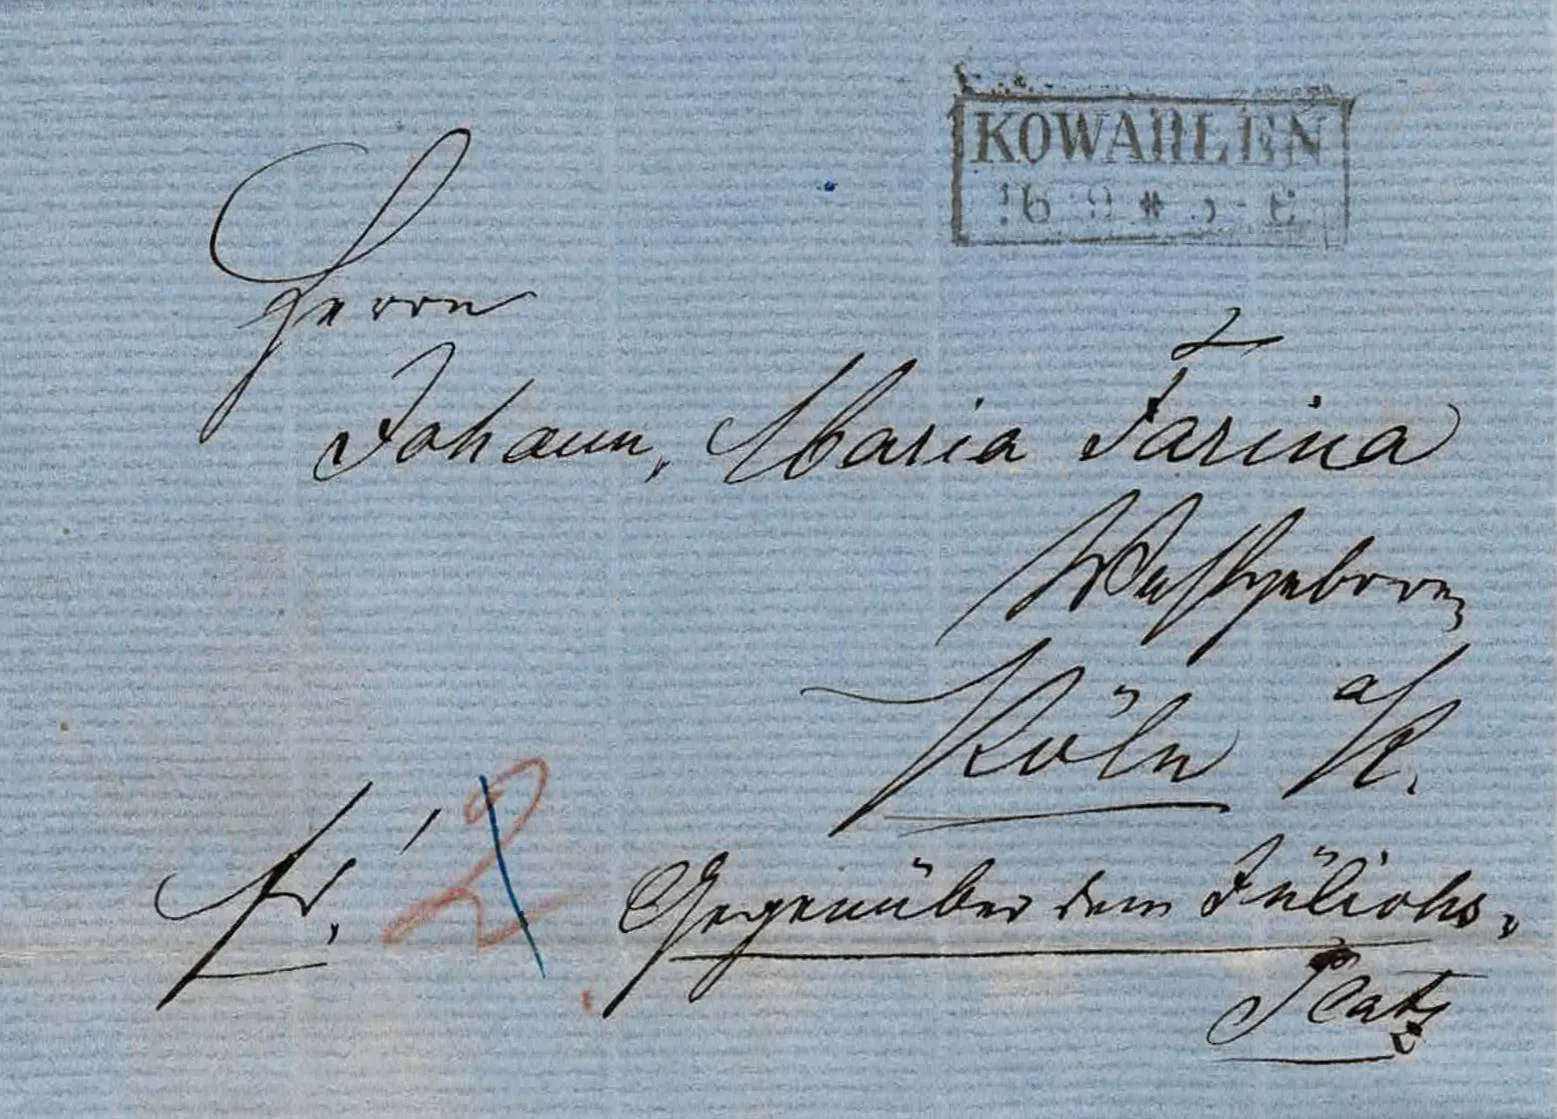 KOWAHLEN
16 9 * 5-6
Herrn
Johann Maria Farina
Wohlgeboren
Köln a/R.
fr. 2
Gegenüber dem Jülichs-
Platz